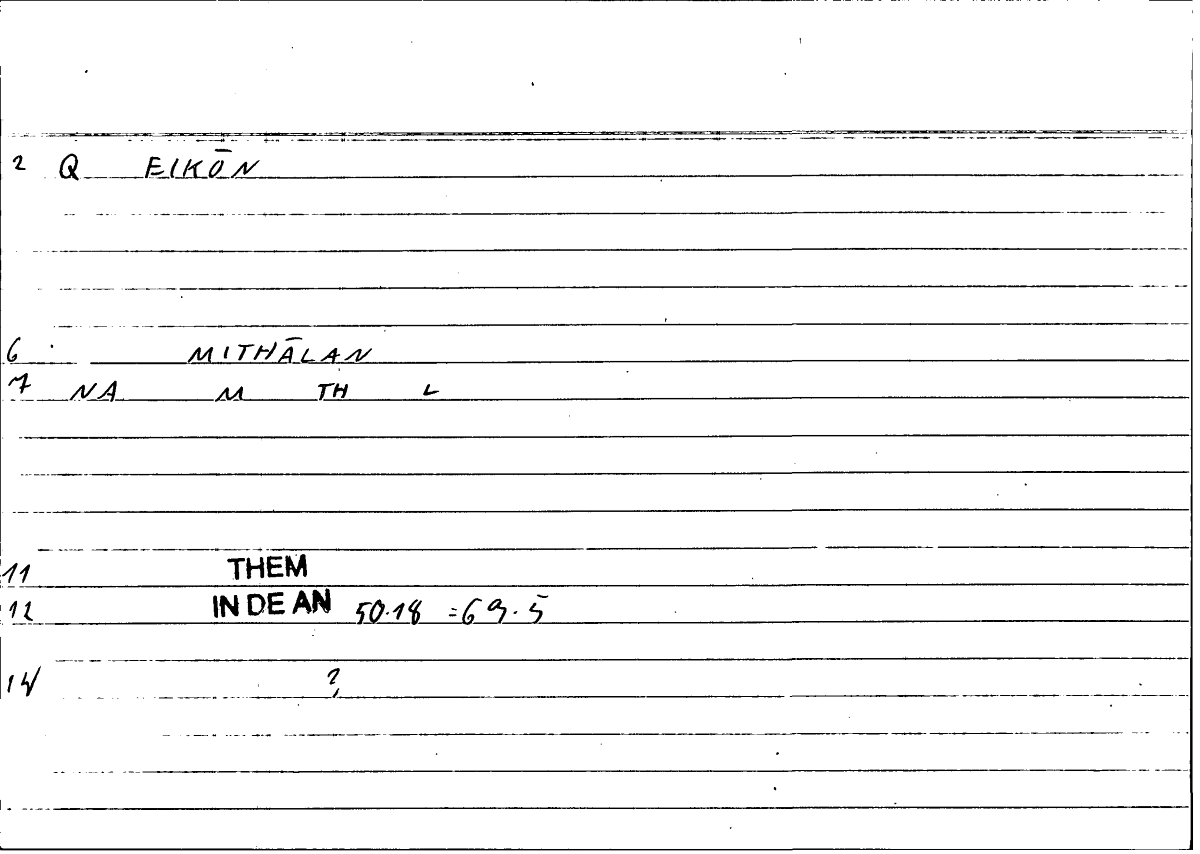 2 Q EIKŌN
6 MITHĀLAN
7 NA M TH L
11 THEM
12 IN DE AN 50.18 =69.5
14 ?